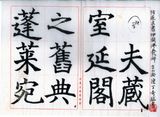 夫藏
室延閣
之舊典
蓬萊宛